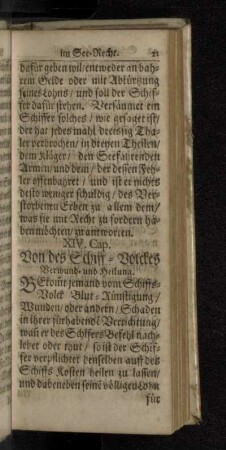 im See-Recht. 21
dafür geben wil/entweder an bah-
rem Gelde oder mit Abkürtzung
seines Lohns/ und soll der Schif-
fer dafür stehen. Versäumet ein
Schiffer solches/ wie gesaget ist/
der hat jedes mahl dreissig Tha-
ler verbrochen/ in dreyen Theilen/
dem Kläger/ den Seefahrenden
Armen/ und dem/ der dessen Feh-
ler offenbahret/ und ist er nichts
desto weniger schuldig/ des Ver-
storbenen Erben zu allem dem/
was sie mit Recht zu fordern ha-
ben möchten/ zu antworten.
XIV. Cap.
Von des Schiff-Volckes
Verwund- und Heilung.
BEkomt jemand vom Schiffs-
Volck Blut-Rünstigung/
Wunden/ oder andern/ Schaden
in ihrer fürhabende Verrichtung/
wañ er des Schffers Befehl nach-
lebet oder thut/ so ist der Schif-
fer verpflichtet denselben auff des
Schiffs Kosten heilen zu lassen/
und dabeneben seinē völligen Lohn
für